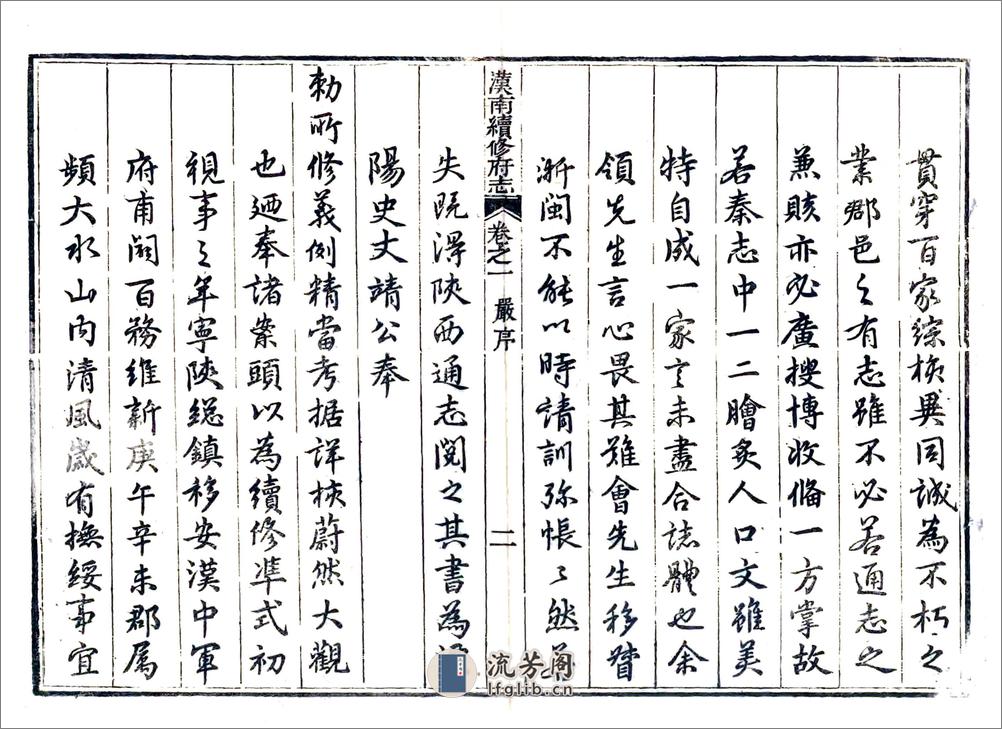 貫穿百家綜核異同誠為不朽之
業郡邑之有志雖不必若通志之
兼賅亦必廣搜博收俻一方掌故
若秦志中一二膾炙人口文雖美
特自成一家言未盡合誌體也余
領先生言心畏其難會先生移督
浙閩不能以時請訓弥悵々然
漢南續修府志 卷之一 嚴序 二
失既淂陝西通志閱之其書為
陽史文靖公奉
勅所修義例精當考据詳核蔚然大觀
也廼奉諸案頭以為續修準式初
視事之年寧陝總鎮移安漢中軍
府甫闢百務維新庚午辛未郡属
頻大水山内清風歲有撫綏事宜
流芳阁
lfglib.cn